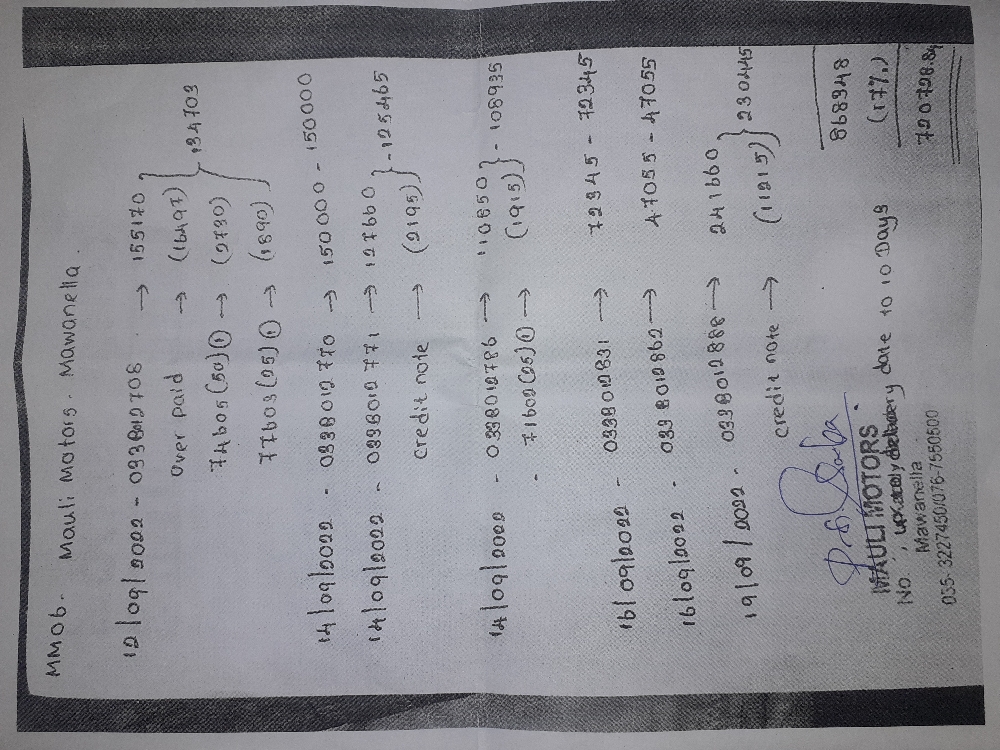 MM06. Mauli Motors. Mawanella.
12/09/2022 - 0338012708 → 155170
over paid → (16447)
74605(50)① → (2730)
77603(25)① → (1890) } - 134103
14/09/2022 - 0338012770 → 150000 - 150000
14/09/2022 - 0338012771 → 127660
credit note → (2195) } - 125465
14/09/2022 - 0338012786 → 110850
- 71602(25)① → (1915) } - 108935
16/09/2022 - 0338012831 → 72345 - 72345
16/09/2022 - 0338012862 → 47055 - 47055
19/09/2022 - 0338012888 → 241660
credit note → (11215) } 230445
868348
(17%)
720728.84
MAULI MOTORS.
No , delivery date to 10 Days
Mawanella
035-3227450/076-7550500